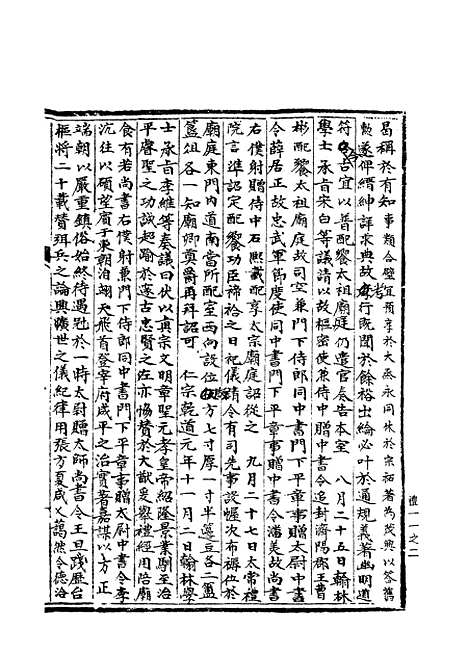 昌稱於有知事類合璧宜預享於大烝永同休於宗祏著為茂典以答舊
勲遂俾縉紳詳求典故考行既聞於餘裕出綸必叶於通規義著幽明道
符今古宜以普配饗太祖廟庭仍遣官奏告本室　八月二十五日翰林
學士承旨宋白等議請以故樞密使兼侍中贈中書令追封濟陽郡王曹
彬配饗太祖廟庭故司空兼門下侍郎同中書門下平章事贈太尉中書
令薛居正故忠武軍節度使同中書門下平章事贈中書令潘美故尚書
右僕射贈侍中石熙載配享太宗廟庭詔從之　九月二十七日太常禮
院言準詔定配饗功臣禘祫之日祀儀請令有司先事設幄次布褥位於
廟庭東門內道南當所配室西向設位版方七寸厚一寸半籩豆各二簠
簋俎各一知廟卿奠爵再拜詔可　仁宗乾興元年十一月二日翰林學
士承旨李維等奏議曰伏以真宗文明章聖元孝皇帝紹隆景業馴至治
平睿聖之功誠超踰於邃古忠賢之佐亦協贊於大猷爰舉禮經用陪廟
食有若尚書右僕射兼門下侍郎同中書門下平章事贈太尉中書令李
沆往以碩望賓于東朝洎翊天飛首登宰府咸平之治實著嘉謀以方正
端朝以嚴重鎮俗始終待遇冠於一時太尉贈太師尚書令王旦踐歷台
樞將二十載贊弭兵之論典曠世之儀紀律用張方夏咸乂藹然令德洽
禮一一之二